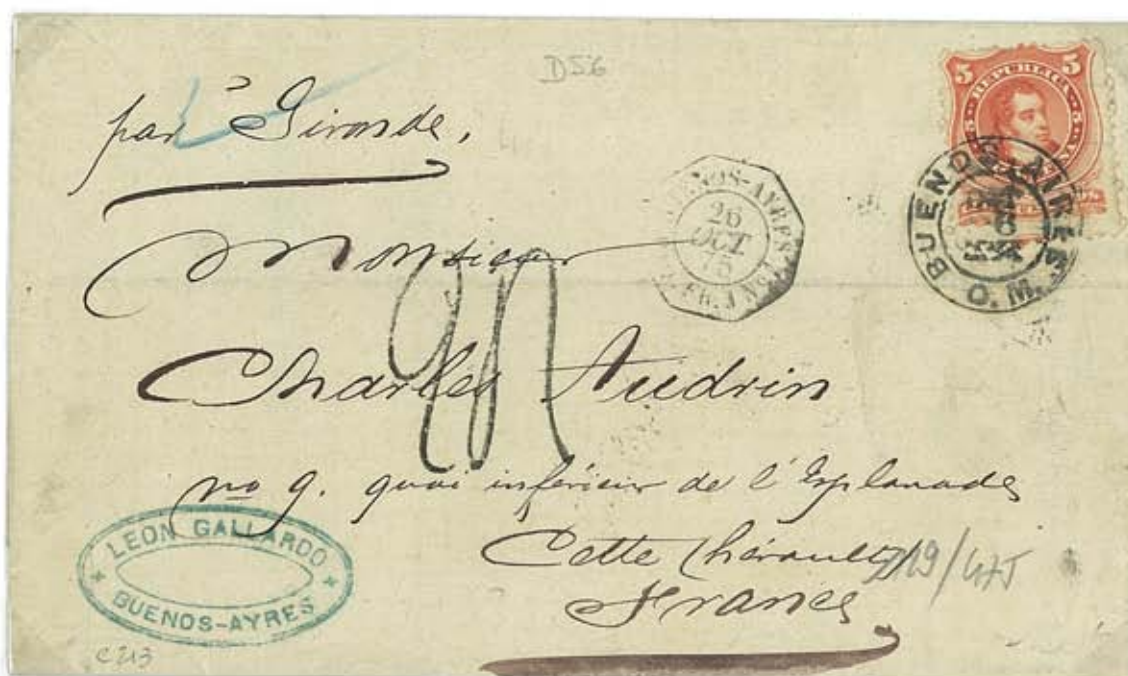 D56
5 REPUBLICA 5
par Gironde,
BUENOS AIRES
O. M.
BUENOS-AYRES
26
OCT
75
Monsieur
Charles Audrin
no 9. quai inférieur de l'Esplanade
Cette (hérault)
719/475
France
LEON GALLARDO
BUENOS-AYRES
C213